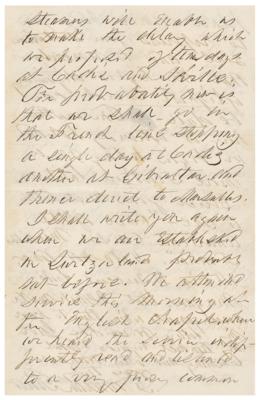 steamers will enable us
to make the delay which
we proposed of ten days
at Cadiz and Seville.
The probability now is
that we shall go in
the French line stopping
a single day at Cadiz
another at Gibraltar and
thence direct to Marseilles.
I shall write you again
when we are established
in Switzerland probably
not before. We attended
service this morning at
the English Chapel where
we heard the service indif-
ferently read and listened
to a very prosy common